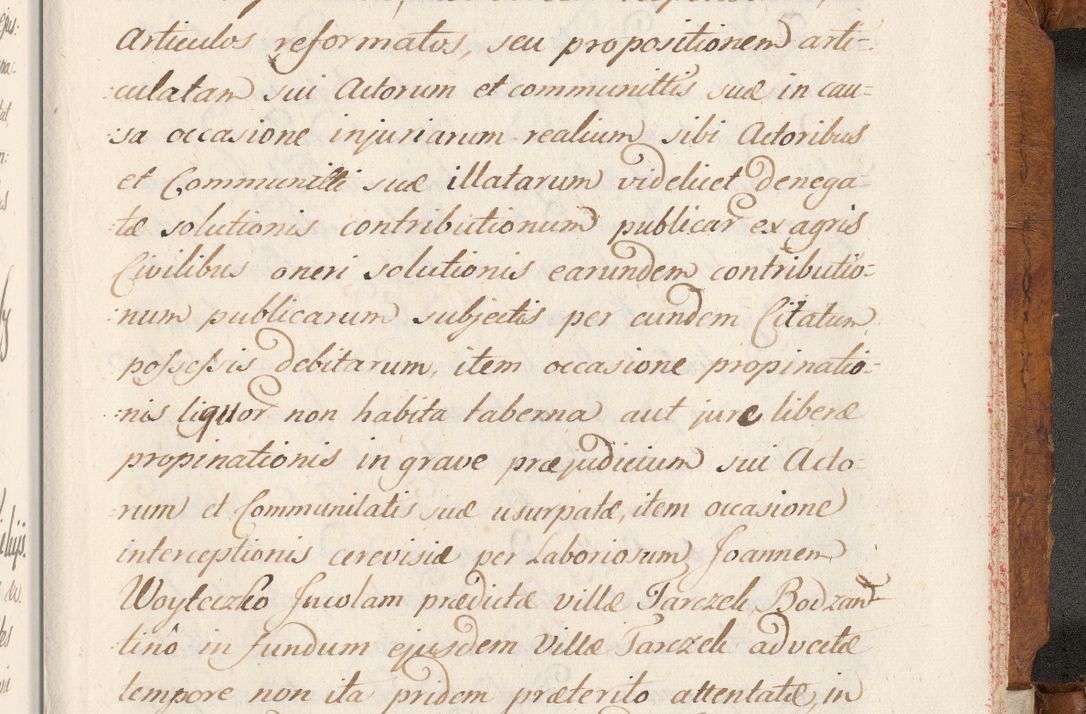 Articulos reformatos, seu propositionem arti-
culatam sui Actorum et communittis suæ in cau-
sa occasione injuriarum realium sibi Actoribus
et Communitti suæ illatarum videlicet denega
tæ solutionis contributionum publicar ex agris
Civilibus oneri solutionis earundem contributio-
num publicarum subjectis per eundem Citatum
possessis debitarum, item occasione propinatio-
nis liquor non habita taberna aut jure liberæ
propinationis in grave præjudicium sui Acto-
rum et Communitatis suæ usurpatæ, item occasione
interceptionis cerevisiæ per Laboriosum Joannem
Woyteczko Incolam prædictæ villæ Tarczek Bodzan
tinô in fundum ejusdem Villæ Tarczek advectæ
tempore non ita pridem præterito attentatæ, in